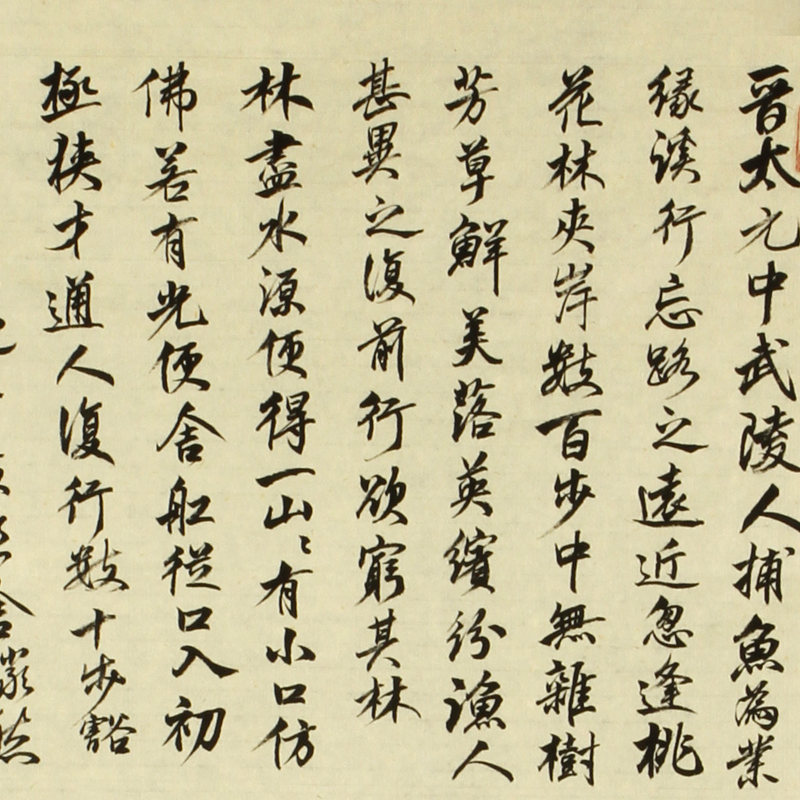 晋太元中武陵人捕魚為業
緣溪行忘路之遠近忽逢桃
花林夾岸數百步中無雜樹
芳草鮮美落英繽紛漁人
甚異之復前行欲窮其林
林盡水源便得一山〻有小口仿
佛若有光便舍舩從口入初
極狹才通人復行數十步豁
舍儼然